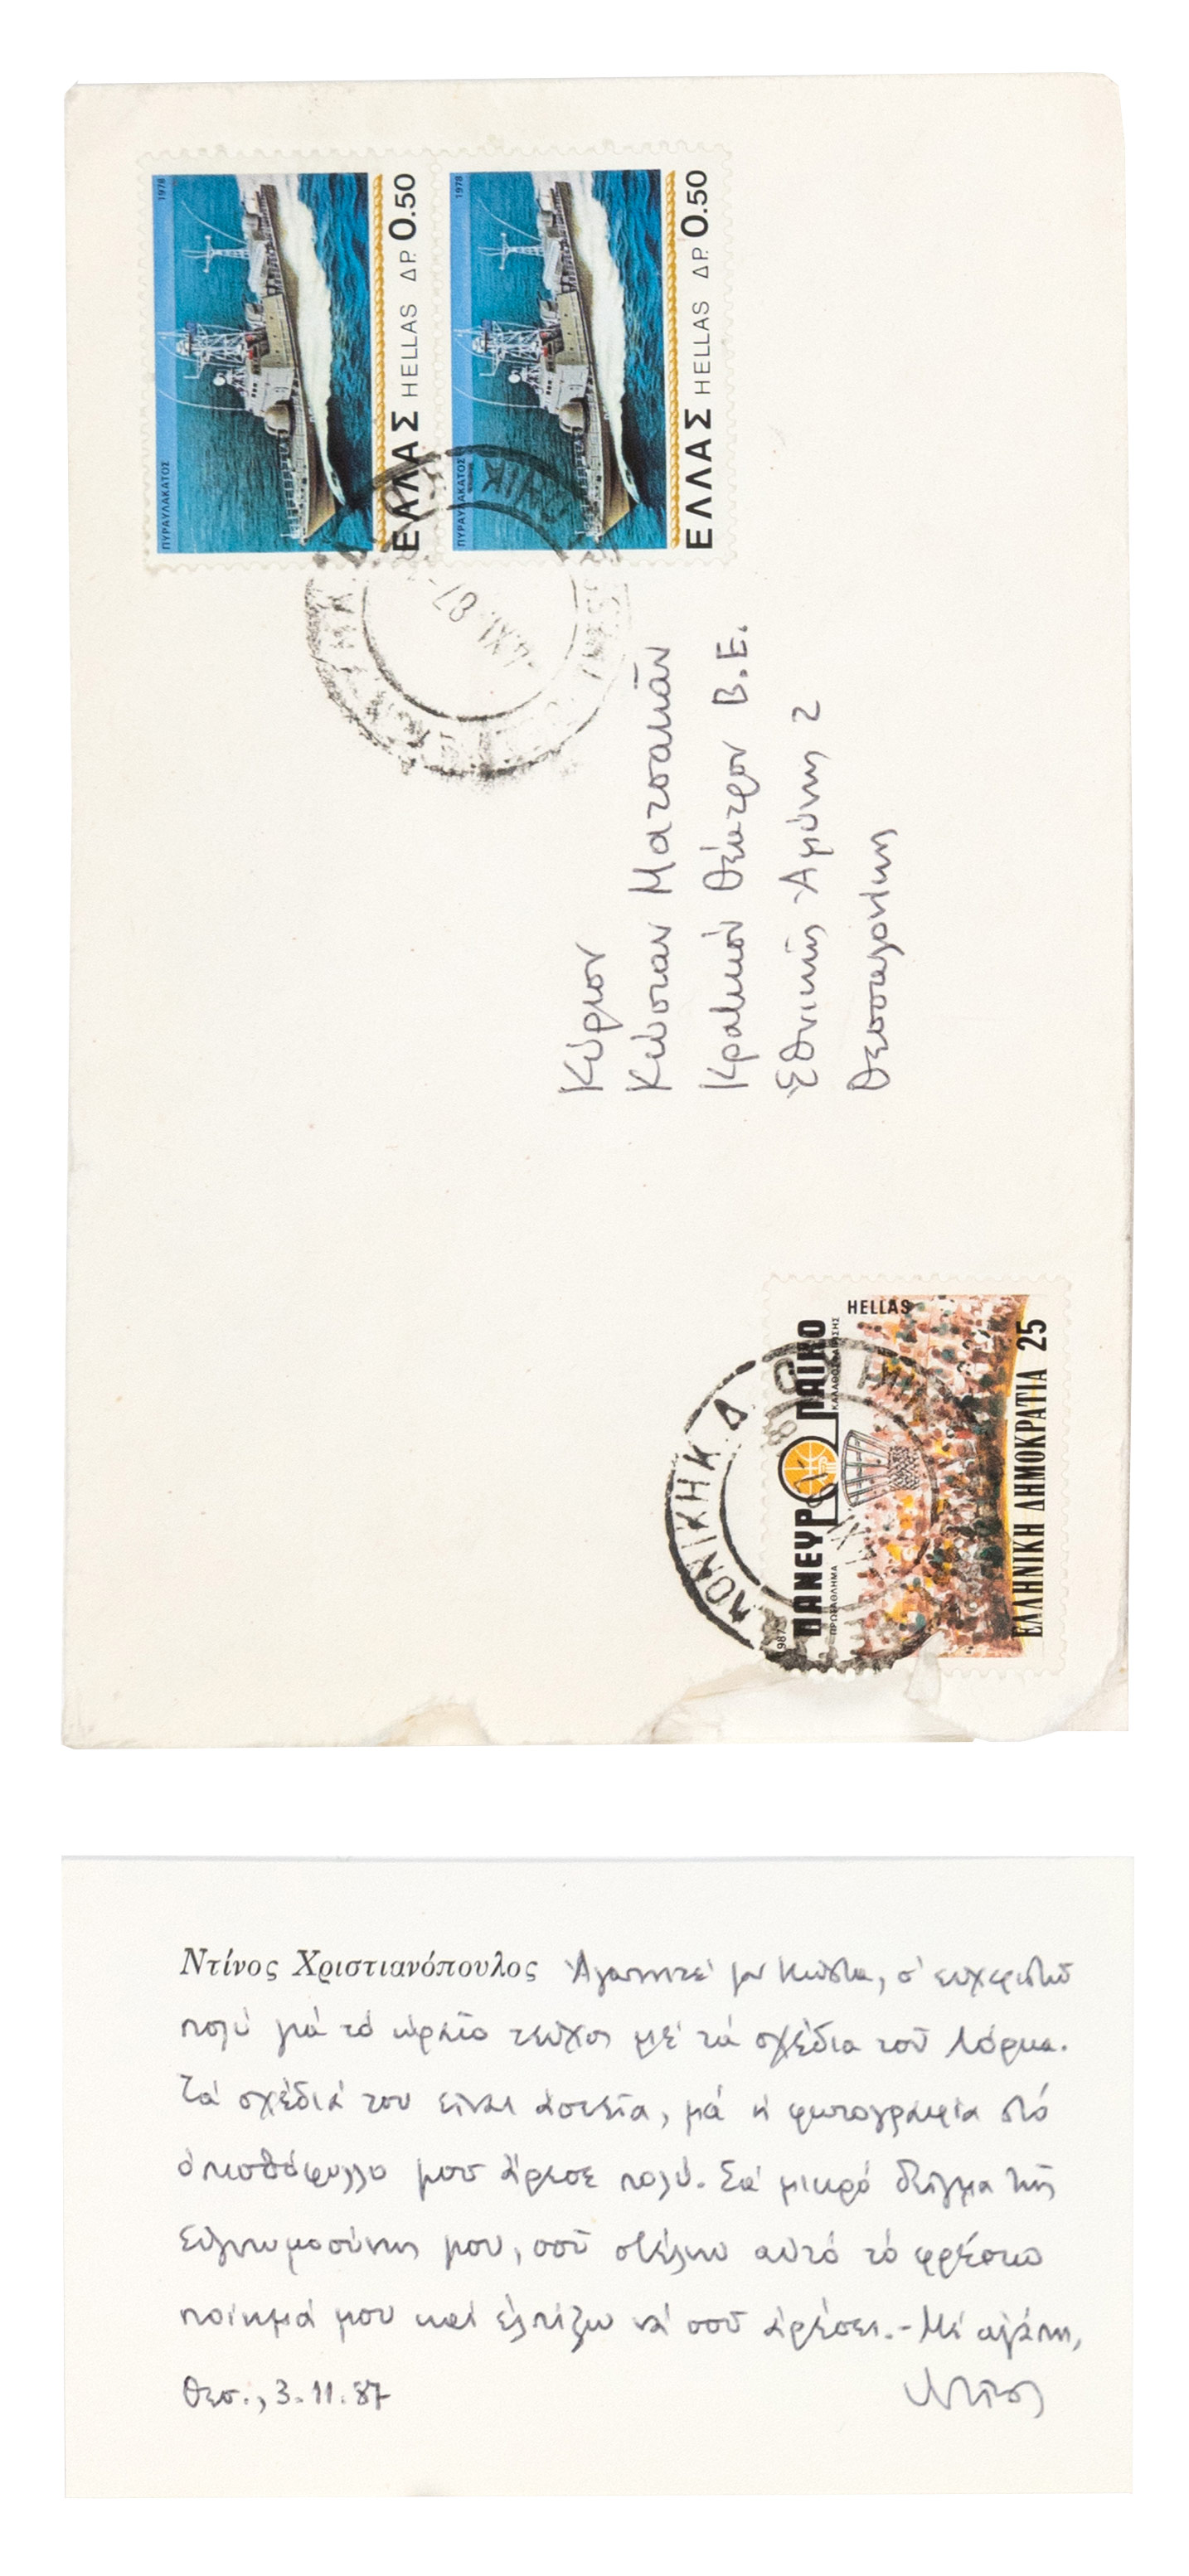 1978
ΠΥΡΑΥΛΑΚΑΤΟΣ
ΕΛΛΑΣ HELLAS ΔΡ. 0.50
1978
ΠΥΡΑΥΛΑΚΑΤΟΣ
ΕΛΛΑΣ HELLAS ΔΡ. 0.50
XI. 87
Κύριον
Κώσταν Ματσακᾶν
Κρατικόν Θέατρον Β.Ε.
Ἐθνικῆς Ἀμύνης 2
Θεσσαλονίκην
ΛΟΝΙΚΗ Κ Δ
1987
ΠΑΝΕΥΡΩΠΑΪΚΟ
ΠΡΩΤΑΘΛΗΜΑ ΚΑΛΑΘΟΣΦΑΙΡΙΣΗΣ
HELLAS
ΕΛΛΗΝΙΚΗ ΔΗΜΟΚΡΑΤΙΑ 25
Ντίνος Χριστιανόπουλος Ἀγαπητέ μου Κώστα, σ' εὐχαριστῶ
πολύ γιά τό ὡραῖο τεῦχος μέ τά σχέδια τοῦ Λόρκα.
Τά σχέδιά του εἶναι ἀστεῖα, μά ἡ φωτογραφία στό
ὀπισθόφυλλο μοῦ ἄρεσε πολύ. Σά μικρό δεῖγμα τῆς
εὐγνωμοσύνης μου, σοῦ στέλνω αὐτό τό φρέσκο
ποίημά μου καί ἐλπίζω νά σοῦ ἀρέσει. - Μέ ἀγάπη,
Θεσ., 3.11.87 Ντῖνος